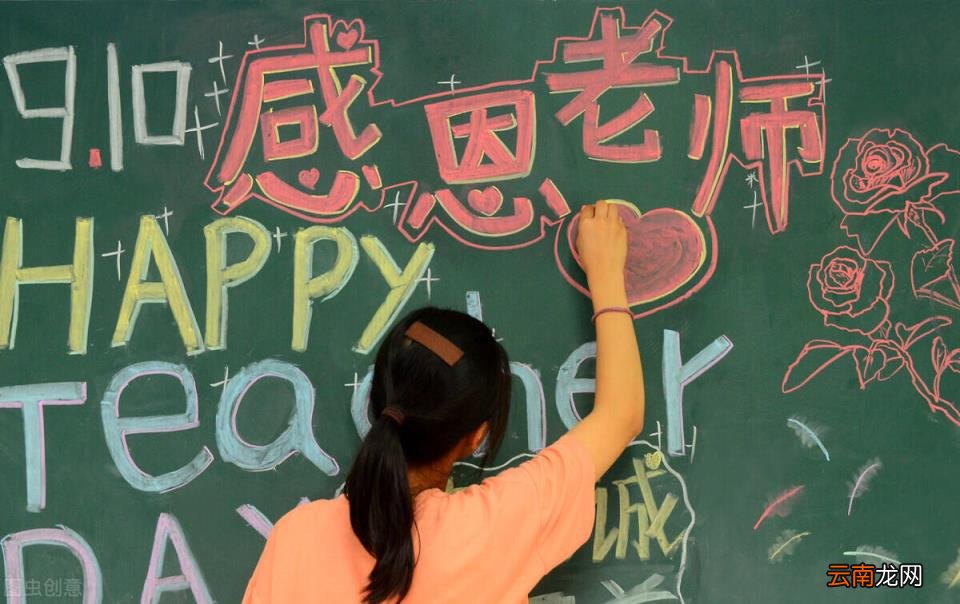 9.10 感恩老师
HAPPY
Teacher
DAY
诚
图虫创意
云南龙网